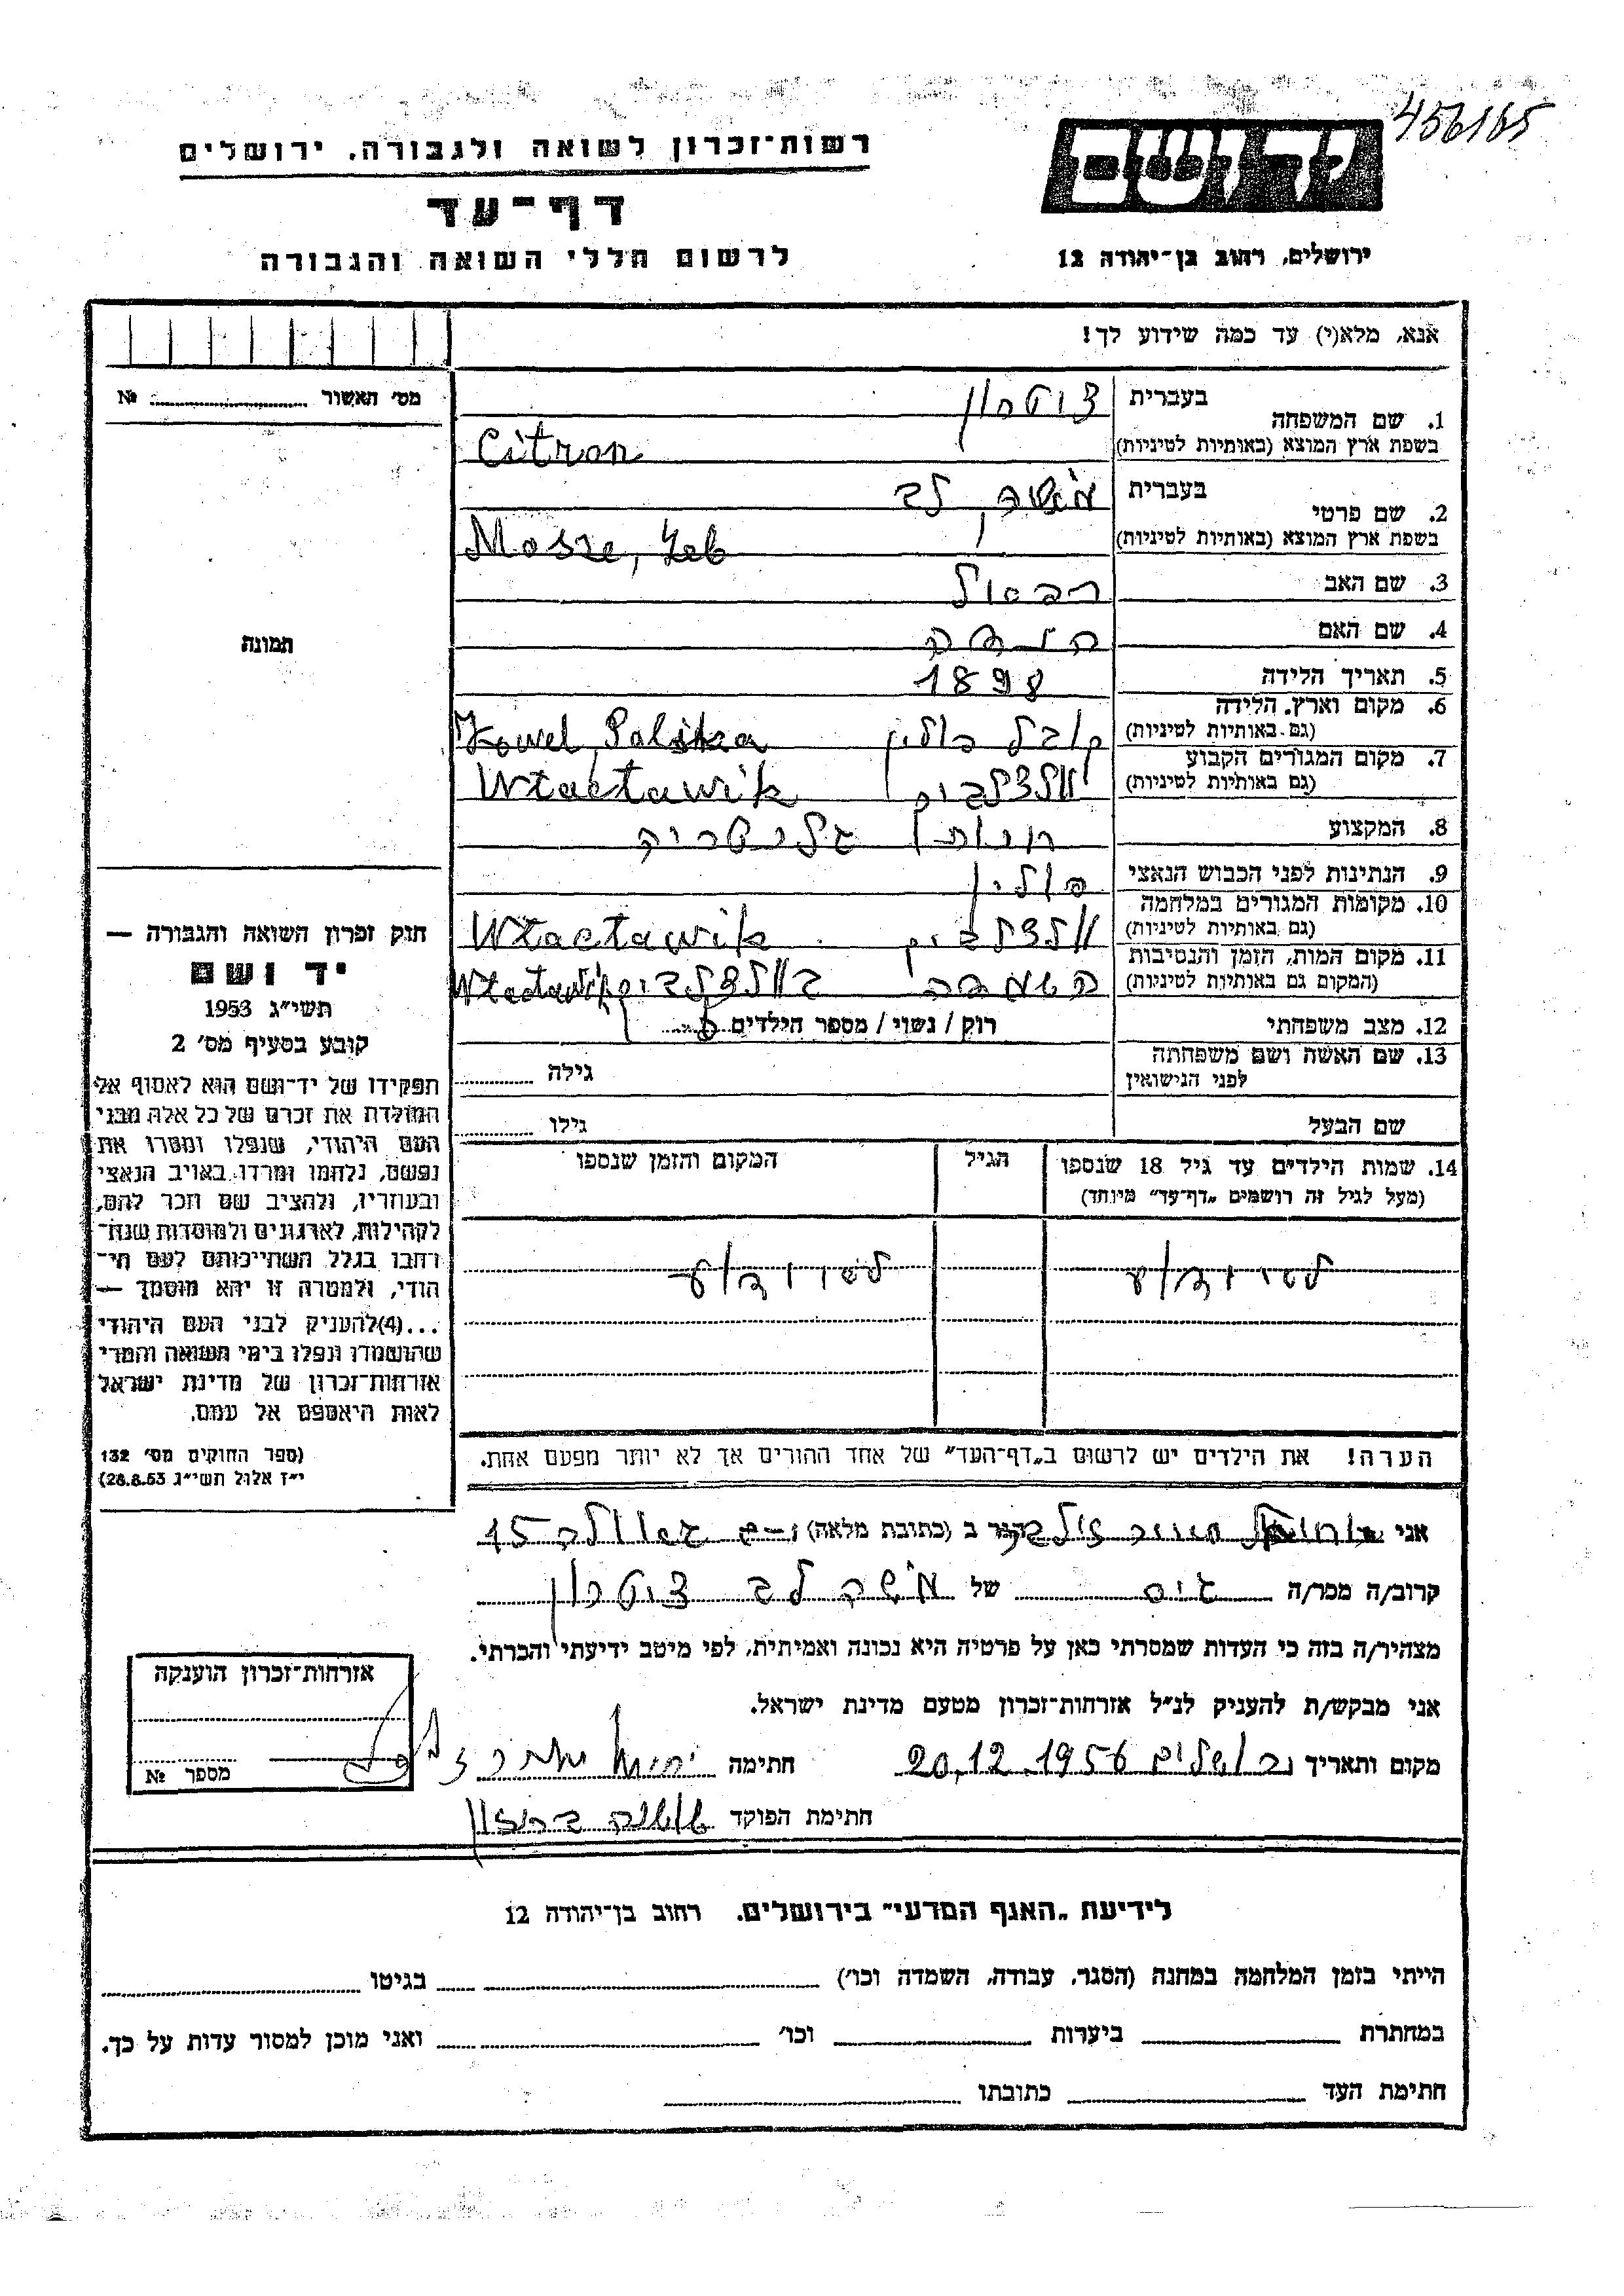 456165
רשות־זכרון לשואה ולגבורה, ירושלים
יד ושם
דף־עד
לרשום חללי השואה והגבורה
ירושלים, רחוב בן־יהודה 12
אנא, מלא(י) עד כמה שידוע לך!
מס' האשור № 
1. שם המשפחה בעברית ציטרון
בשפת ארץ המוצא (באותיות לטיניות) Citron
2. שם פרטי בעברית משה, לב
בשפת ארץ המוצא (באותיות לטיניות) Mosze, Leb
3. שם האב
4. שם האם
5. תאריך הלידה 1898
6. מקום וארץ הלידה (גם באותיות לטיניות) קובל פולין Kowel, Polska
7. מקום המגורים הקבוע (גם באותיות לטיניות) Włactawik
8. המקצוע חנות גלנטריה
9. הנתינות לפני הכבוש הנאצי פולין
10. מקומות המגורים במלחמה (גם באותיות לטיניות) Włactawik
11. מקום המות, הזמן והנסיבות (המקום גם באותיות לטיניות) Włactawik
12. מצב משפחתי רוק / נשוי / מספר הילדים
13. שם האשה ושם משפחתה לפני הנישואין גילה
שם הבעל גילו
14. שמות הילדים עד גיל 18 שנספו הגיל המקום והזמן שנספו
(מעל לגיל זה רושמים "דף־עד" מיוחד)
לא ידוע לא ידוע
הערה! את הילדים יש לרשום ב"דף־העד" של אחד ההורים אך לא יותר מפעם אחת.
תמונה
חוק זכרון השואה והגבורה —
יד ושם
תשי"ג 1953
קובע בסעיף מס' 2
תפקידו של יד־ושם הוא לאסוף אל
המולדת את זכרם של כל אלה מבני
העם היהודי, שנפלו ומסרו את
נפשם, נלחמו ומרדו באויב הנאצי
ובעוזריו, ולהציב שם וזכר להם,
לקהילות, לארגונים ולמוסדות שנח־
רבו בגלל השתייכותם לעם הי־
הודי, ולמטרה זו יהא מוסמך —
...(4) להעניק לבני העם היהודי
שהושמדו ונפלו בימי השואה והמרי
אזרחות־זכרון של מדינת ישראל
לאות היאספם אל עמם.
(ספר החוקים מס' 132
י"ז אלול תשי"ג 28.8.53)
אני הגר ב (כתובת מלאה) 15
קרוב/ה מכר/ה גיס של משה לב ציטרון
מצהיר/ה בזה כי העדות שמסרתי כאן על פרטיה היא נכונה ואמיתית, לפי מיטב ידיעתי והכרתי.
אני מבקש/ת להעניק לנ"ל אזרחות־זכרון מטעם מדינת ישראל.
מקום ותאריך ירושלים 20.12.1956 חתימה
חתימת הפוקד
אזרחות־זכרון הוענקה
מספר №
לידיעת "האגף המדעי" בירושלים, רחוב בן־יהודה 12
הייתי בזמן המלחמה במחנה (הסגר, עבודה, השמדה וכו') בגיטו
במחתרת ביערות וכו' ואני מוכן למסור עדות על כך.
חתימת העד כתובתו